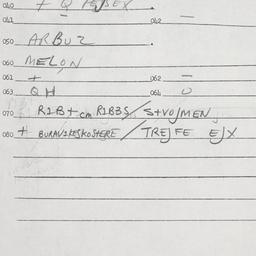 040 + Q
041 – 042 –
050 ARBUZ .
060 MELON
061 + 062 –
063 QH 064 U
070 R1B+cm R1B3S/S+VOJMEN
080 + BURAVIKESKOSTERE/TREJFE EJX